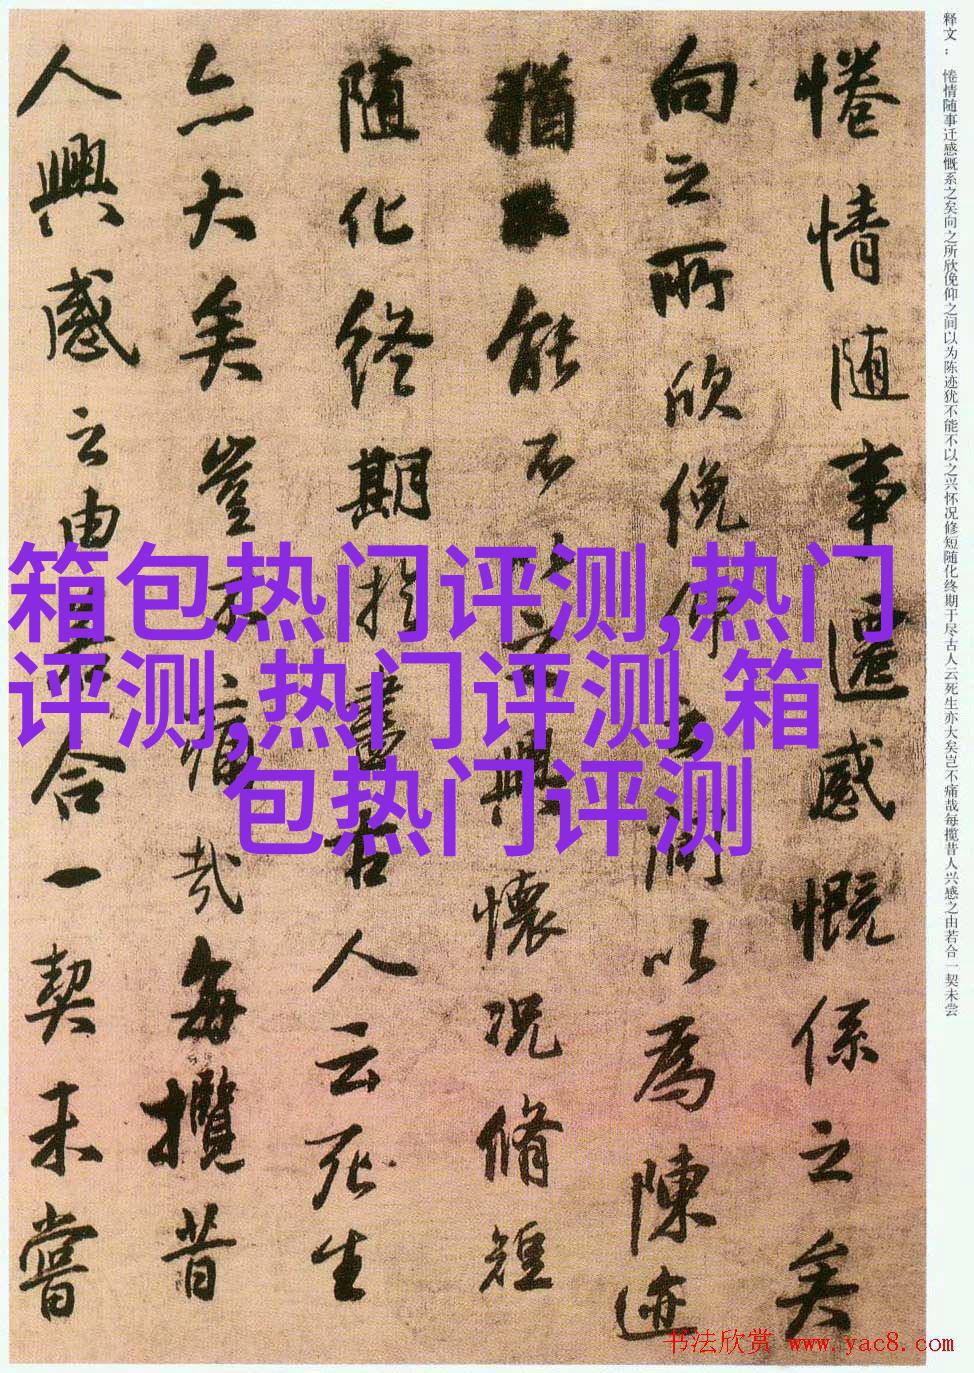 释文：惓情随事迁感慨系之矣向之所欣俛仰之间以为陈迹犹不能不以之兴怀况修短随化终期于尽古人云死生亦大矣岂不痛哉每揽昔人兴感之由若合一契未尝
惓情随事遷感慨係之矣
向之所欣俛仰之間以為陳迹
猶不能不以之興懷况脩短
随化終期扵盡古人云死生
亦大矣豈不痛哉每攬昔
人興感之由若合一契未嘗
箱包热门评测,热门
评测,热门评测,箱
包热门评测
书法欣赏 www.yac8.com